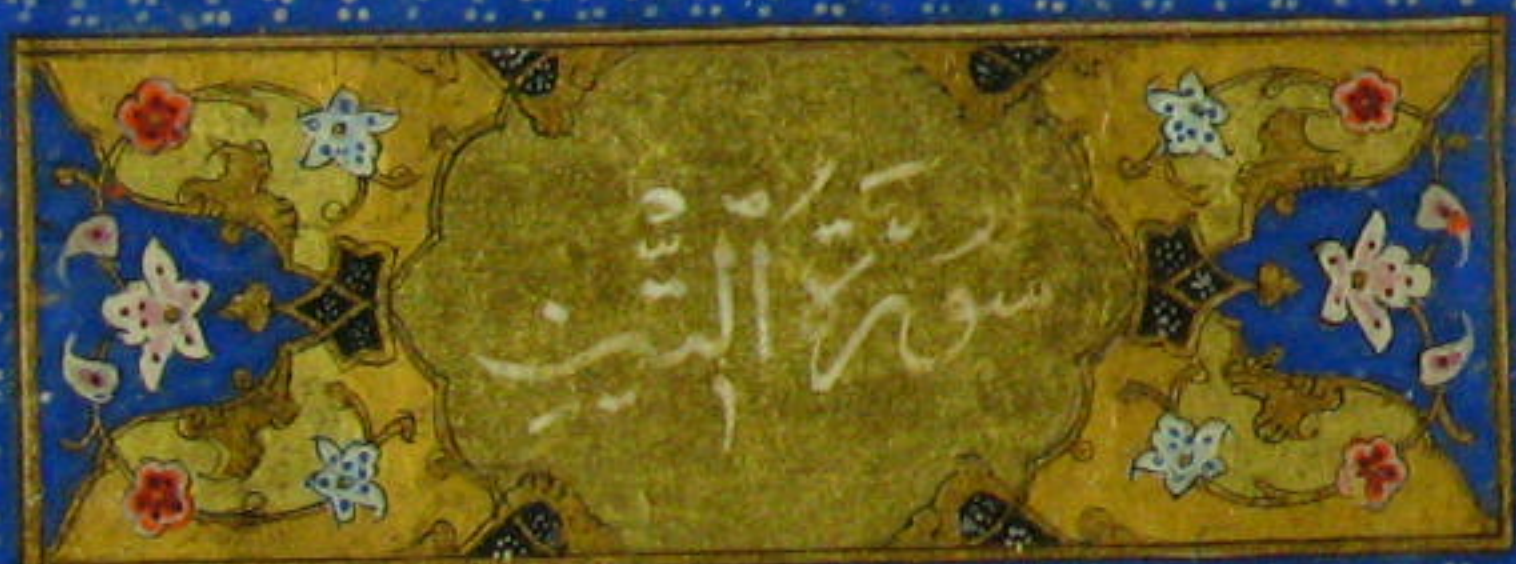 سُورَةُ ٱلتِّينِ